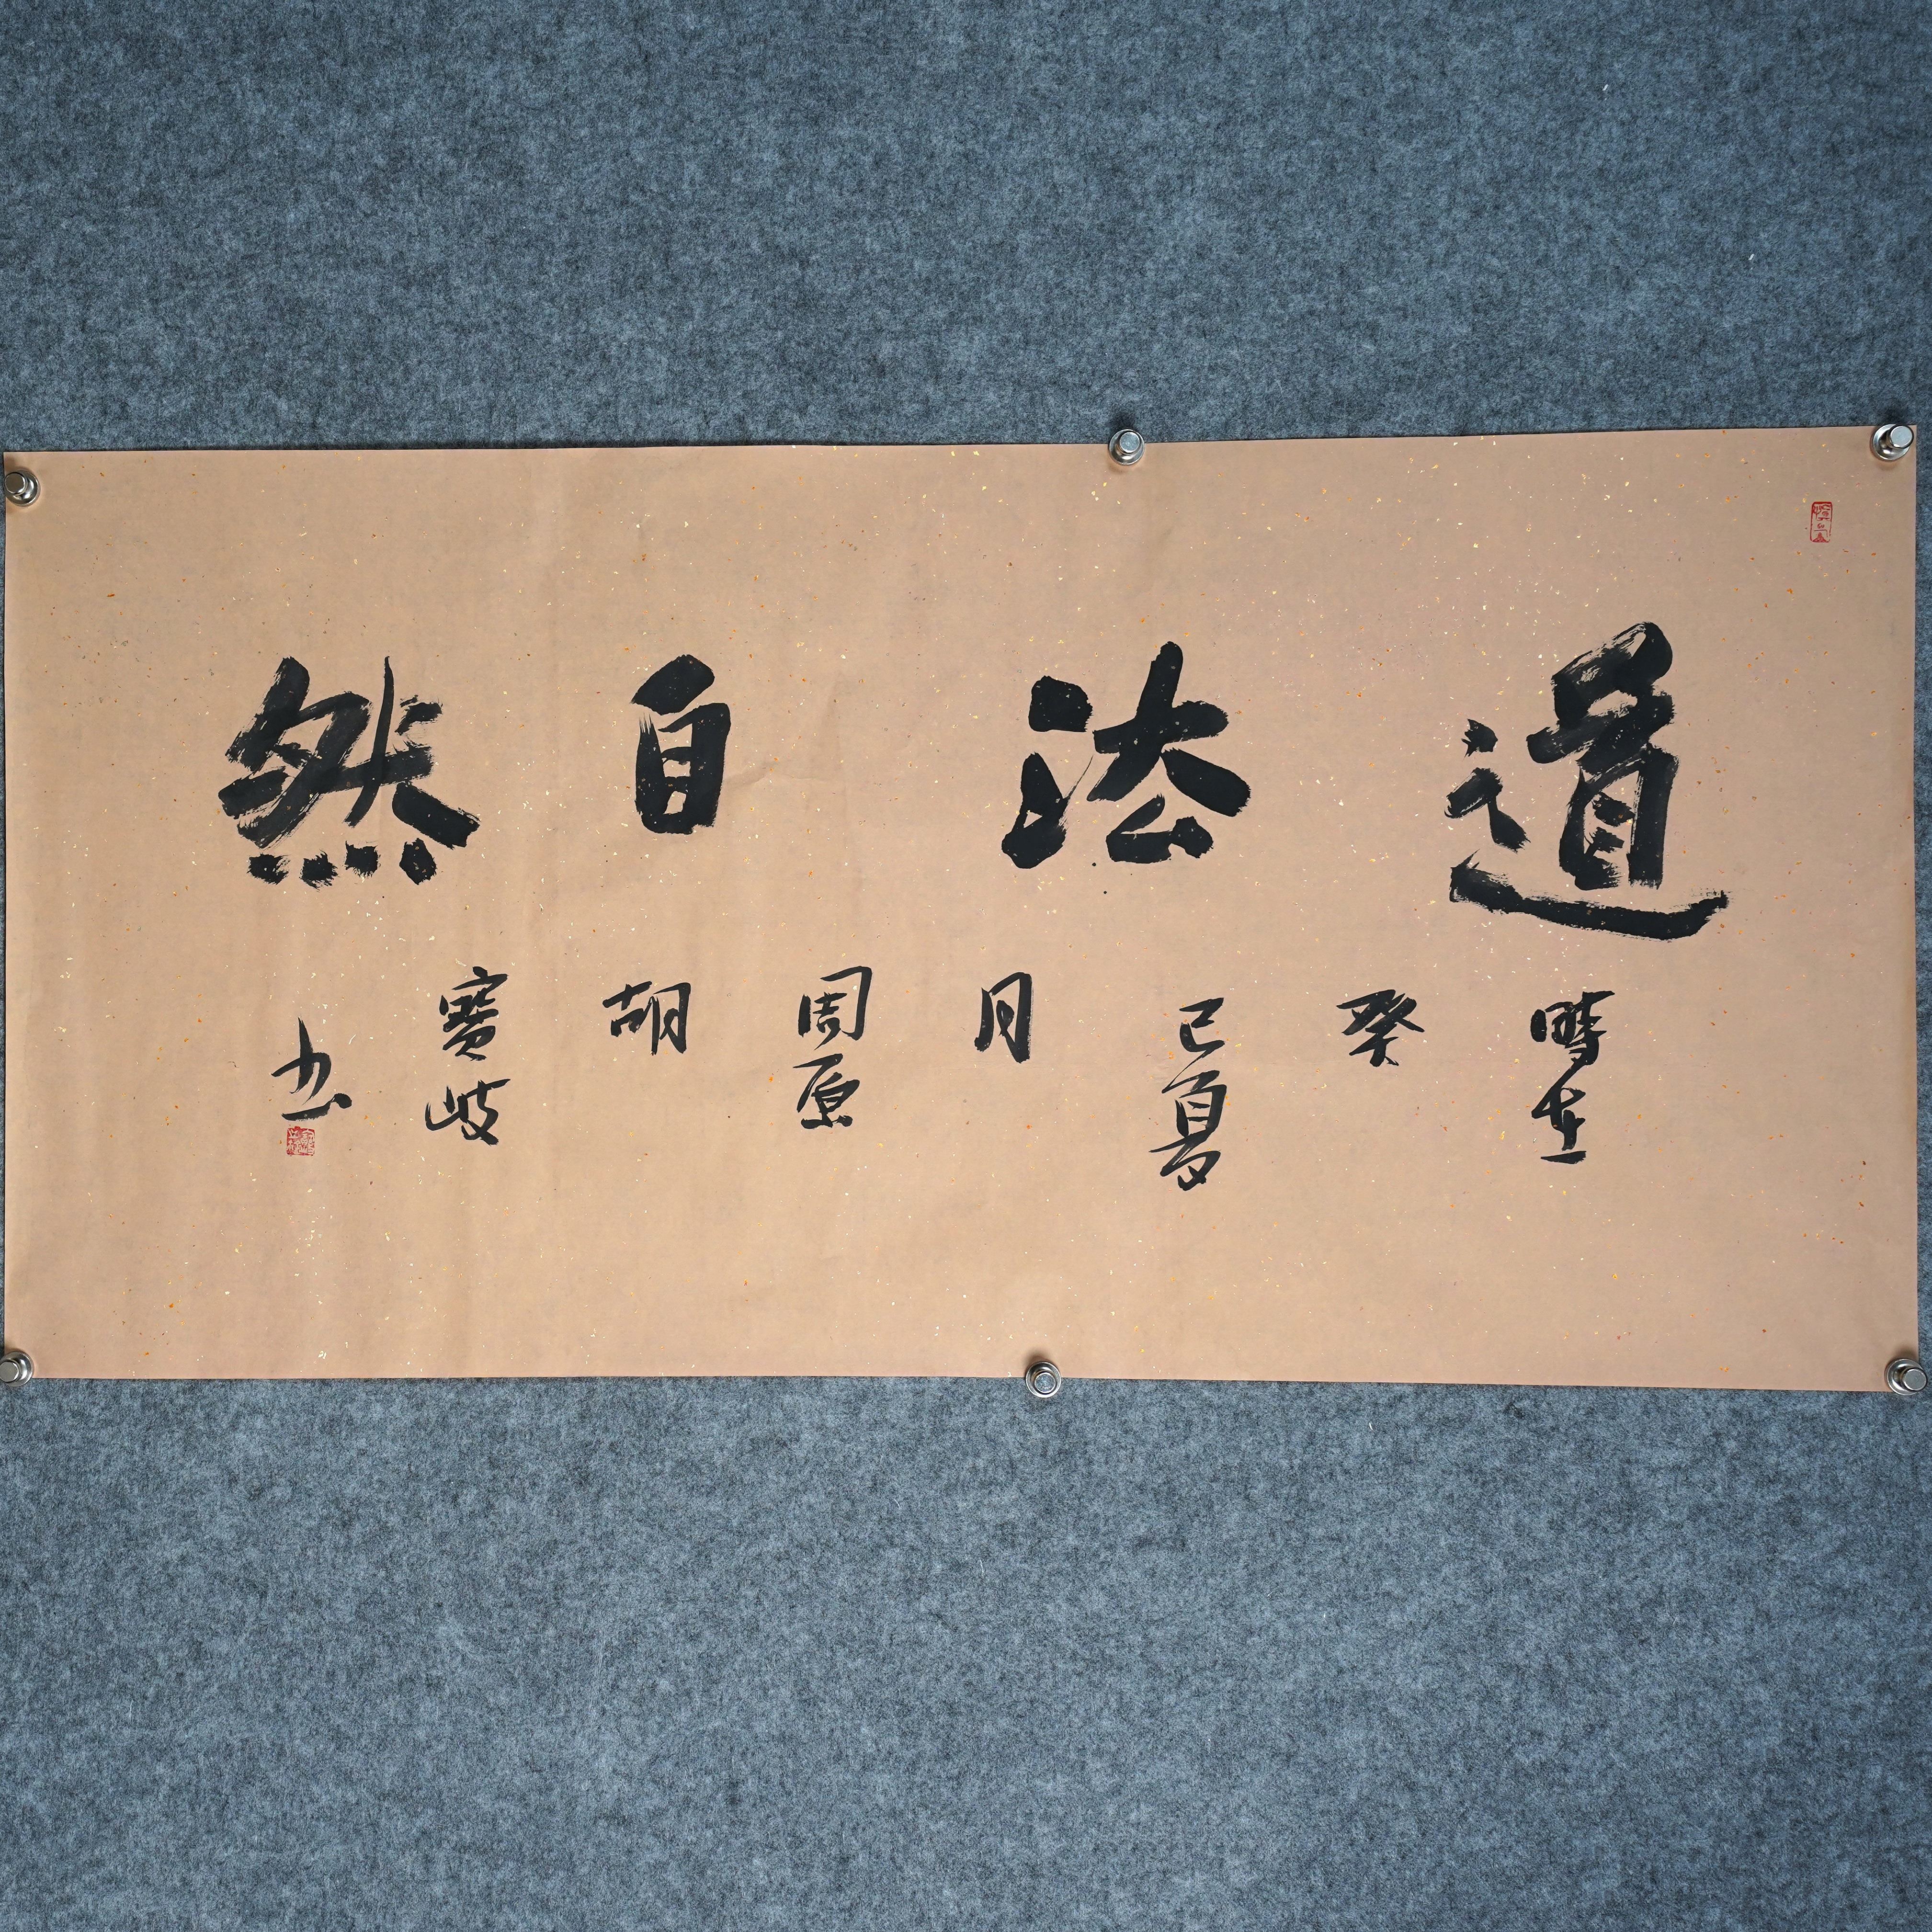 道法自然
時在癸巳夏月周原胡寶岐书